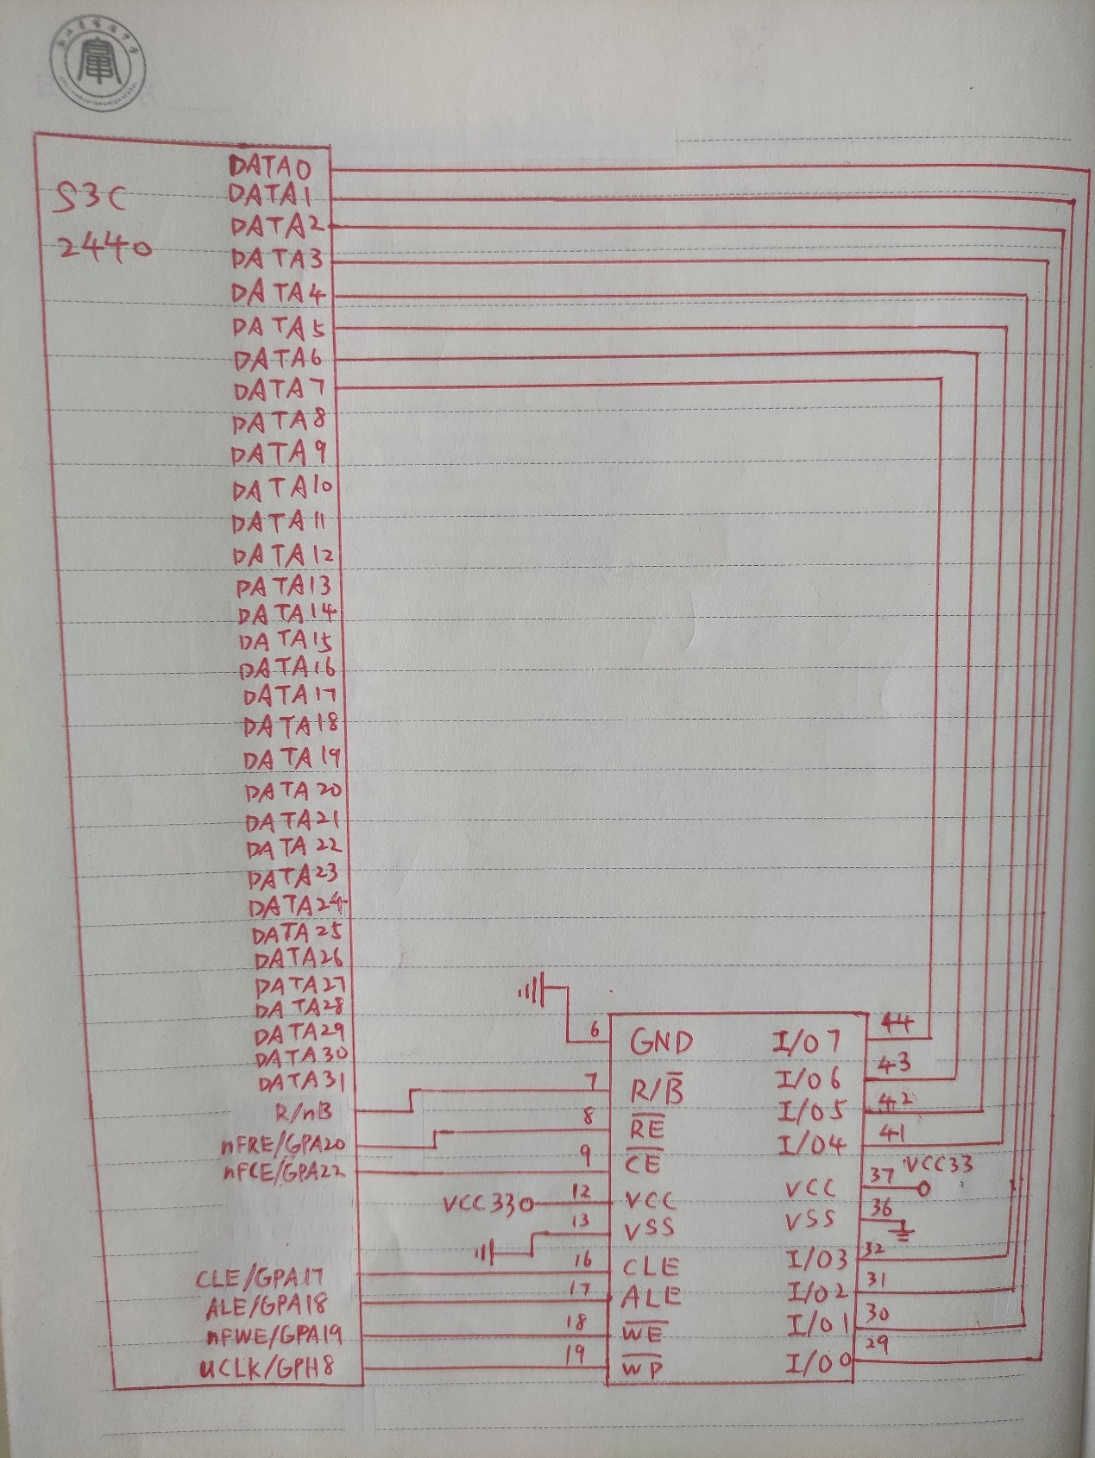 S3C
2440
DATA0
DATA1
DATA2
DATA3
DATA4
DATA5
DATA6
DATA7
DATA8
DATA9
DATA10
DATA11
DATA12
DATA13
DATA14
DATA15
DATA16
DATA17
DATA18
DATA19
DATA20
DATA21
DATA22
DATA23
DATA24
DATA25
DATA26
DATA27
DATA28
DATA29
DATA30
DATA31
R/nB
nFRE/GPA20
nFCE/GPA22
CLE/GPA17
ALE/GPA18
nFWE/GPA19
UCLK/GPH8
6 GND
7 R/B̅
8 R̅E̅
9 C̅E̅
VCC33 12 VCC
13 VSS
16 CLE
17 ALE
18 W̅E̅
19 W̅P̅
I/O7 44
I/O6 43
I/O5 42
I/O4 41
VCC 37 VCC33
VSS 36
I/O3 32
I/O2 31
I/O1 30
I/O0 29